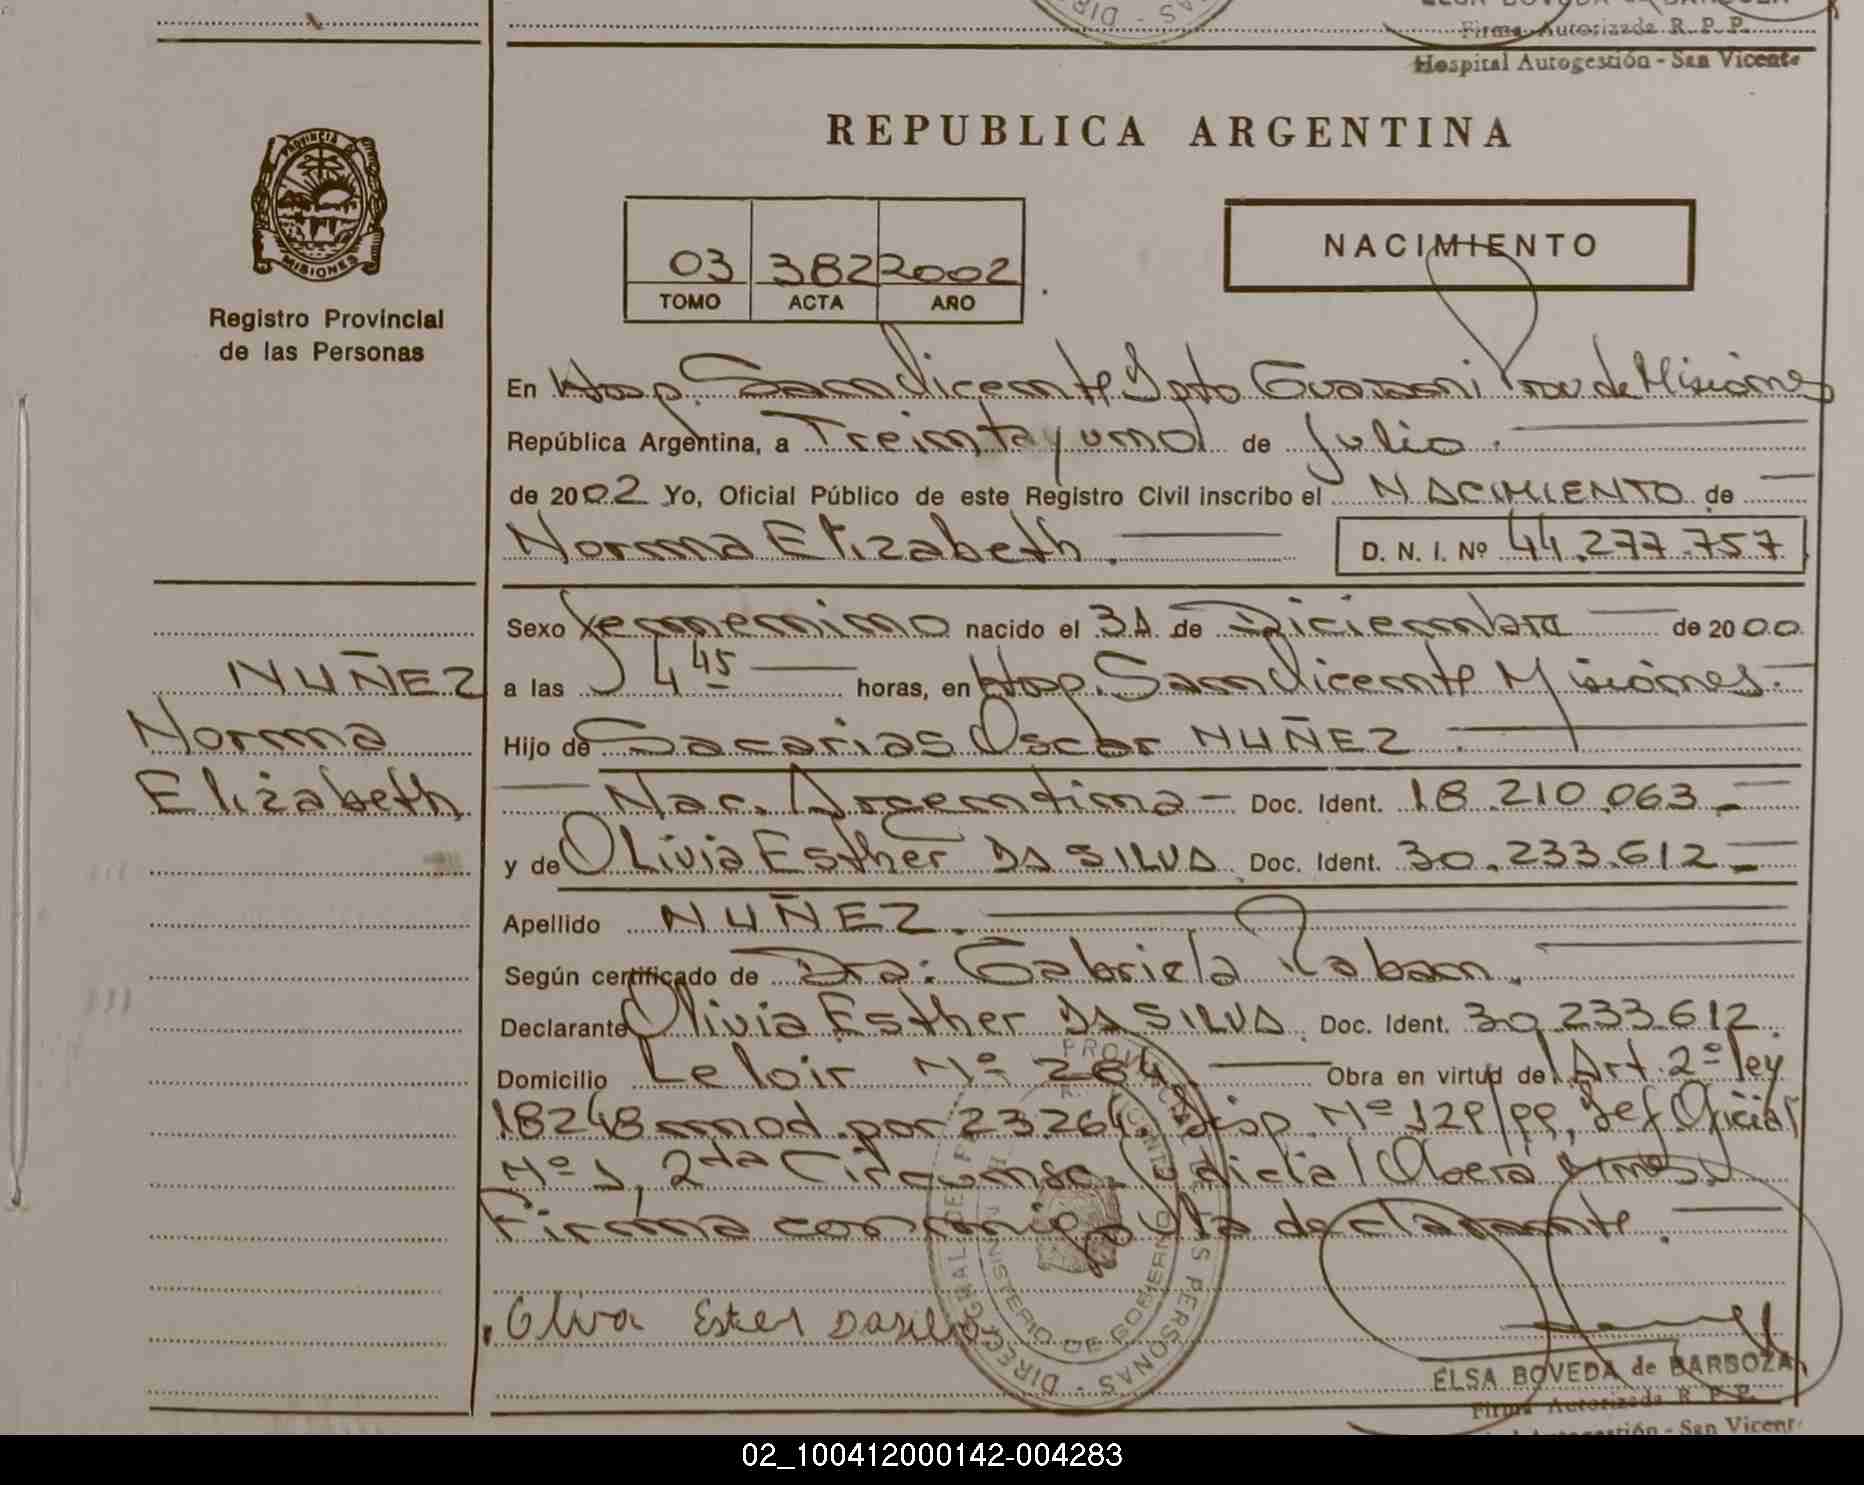 Firma Autorizada R. P. P.
Hospital Autogestión - San Vicente
PROVINCIA DE
MISIONES
Registro Provincial
de las Personas
REPUBLICA ARGENTINA
03 382 2002
TOMO ACTA AÑO
NACIMIENTO
En Hosp. San Vicente Dpto Guarani Prov de Misiones
República Argentina, a Treinta y uno de Julio.
de 2002 Yo, Oficial Público de este Registro Civil inscribo el NACIMIENTO de
Norma Elizabeth. D. N. I. Nº 44.277.757
NUÑEZ
Norma
Elizabeth
Sexo femenino nacido el 31 de Diciembre de 2000
a las 4 45 horas, en Hosp. San Vicente Misiones.
Hijo de Sacarias Oscar NUÑEZ
Nac. Argentina - Doc. Ident. 18.210.063
y de Olivia Esther DA SILVA Doc. Ident. 30.233.612
Apellido NUÑEZ.
Según certificado de Dra: Gabriela
Declarante Olivia Esther DA SILVA Doc. Ident. 30.233.612
Domicilio Leloir Nº 264 Obra en virtud del Art. 2º ley
18248 mod. por 23.264, Disp. Nº Def Oficial
Nº 1, 2da Circunsc. Judicial Obera Mnes.
Firma conmigo la declarante.
Oliva Ester Dasilva
DIREC. GRAL DE PERSONAS
MINISTERIO DE GOBIERNO
ELSA BOVEDA de BARBOZA
Firma Autorizada R. P. P.
- San Vicente
02_100412000142-004283